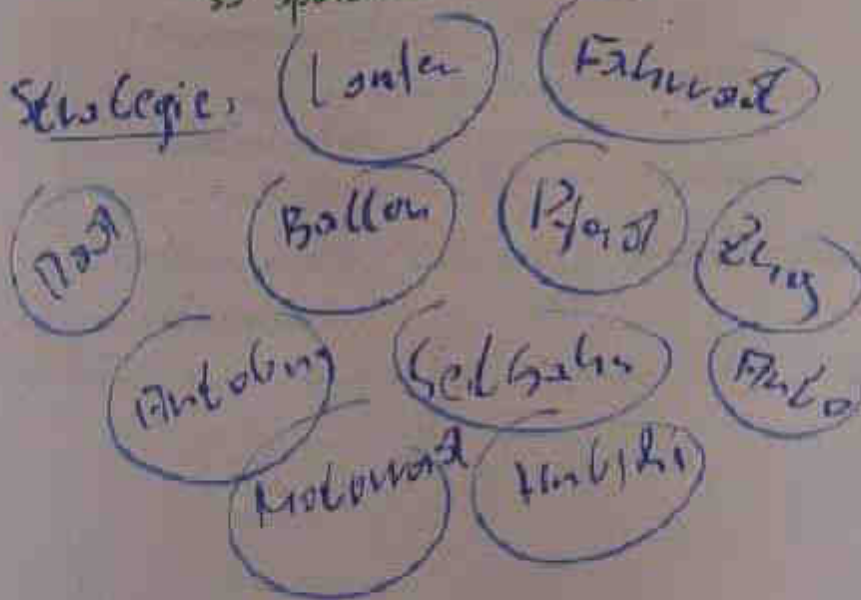 Strategie: Laufen Fahrrad
Rad Ballon Pferd Zug
Autobus Seilbahn Auto
Motorrad